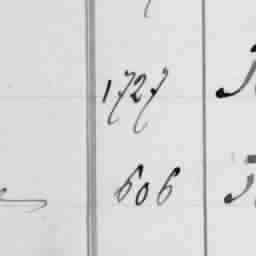 1727
606